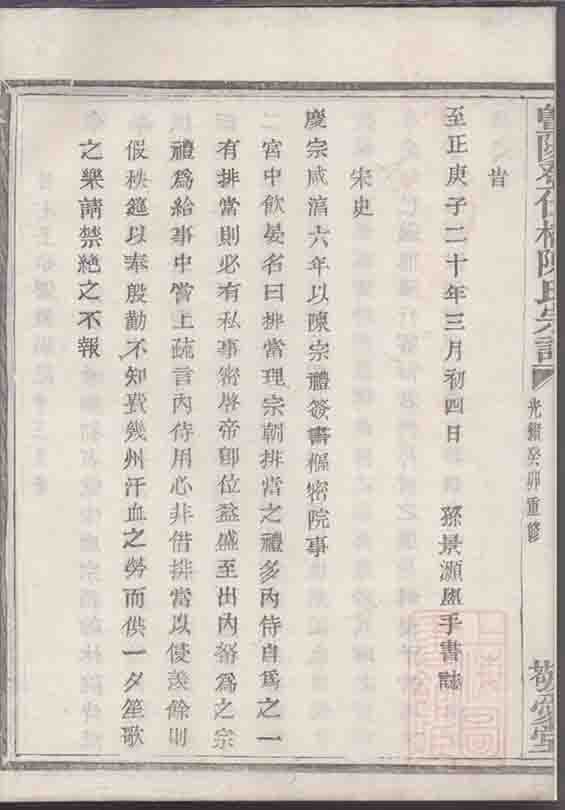 暨陽孝仁橋陳氏宗譜
光緒癸卯重修
敬愛堂
旹
至正庚子二十年三月初四日　孫景灝盥手書誌
宋史
慶宗咸湻六年以陳宗禮簽書樞密院事
宮中飲宴名曰排當理宗朝排當之禮多內侍自爲之一
有排當則必有私事密啓帝卽位益盛至出內帑爲之宗
禮爲給事中嘗上疏言內侍用心非借排當以侵羨餘則
假秩筵以奉殷勤不知費幾州汗血之勞而供一夕笙歌
之樂請禁絕之不報